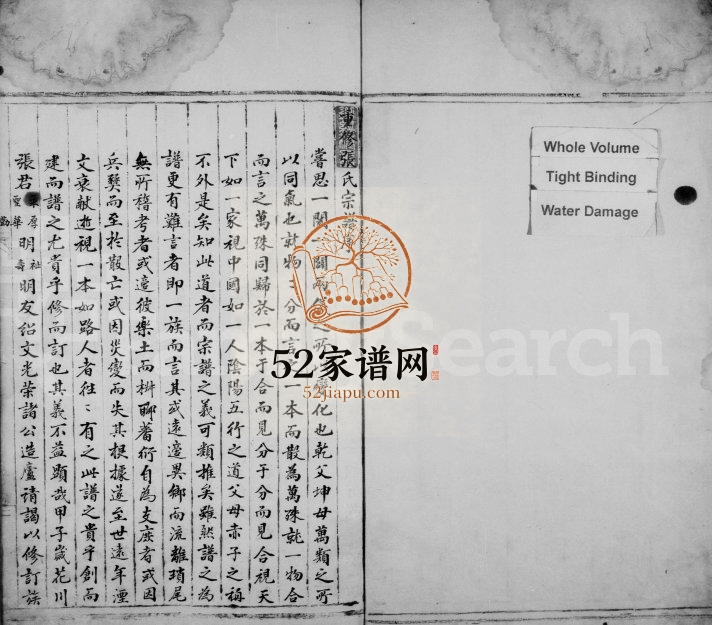 重修張氏宗譜序
嘗思一闔一闢兩儀之所變化也乾父坤母萬類之所
以同氣也就物分而言一本而散為萬殊就一物合
而言之萬殊同歸於一本于合而見分于分而見合視天
下如一家視中國如一人陰陽五行之道父母赤子之稱
不外是矣知此道者而宗譜之義可類推矣雖然譜之為
譜更有難言者即一族而言其或遠適異鄉而流離瑣尾
無所稽考者或適彼樂土而椒聊蕃衍自為支庶者或因
兵燹而至於散亡或因災變而失其根據遂至世遠年湮
文哀獻逝視一本如路人者往〻有之此譜之貴乎創而
建而譜之尤貴乎修而訂也其義不益顯哉甲子歲花川
張君厚聖華明祉壽明友紹文光榮諸公造廬請謁以修訂族
Whole Volume
Tight Binding
Water Damage
52家谱网
52jiapu.com
Search